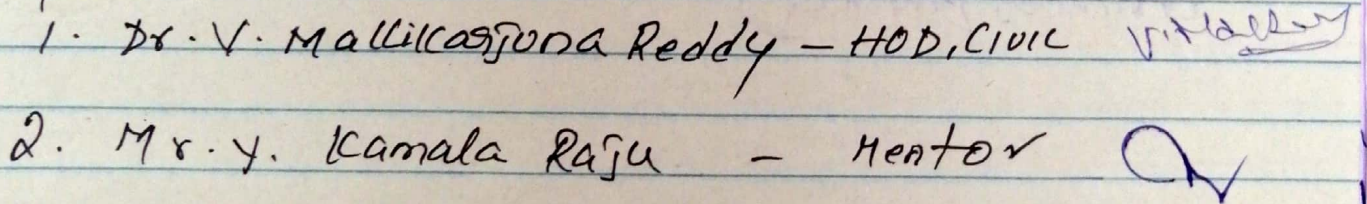 1. Dr. V. Mallikarjuna Reddy - HOD, CIVIL
2. Mr. Y. Kamala Raju - Mentor